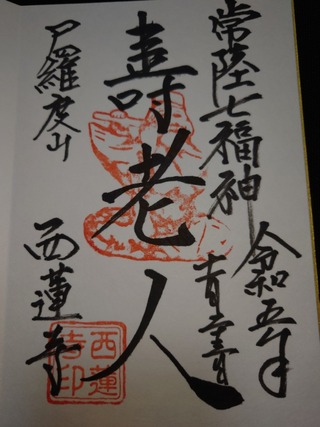 常陸七福神
令和五年
壽老人
尸羅度山
西蓮寺
西蓮
寺印